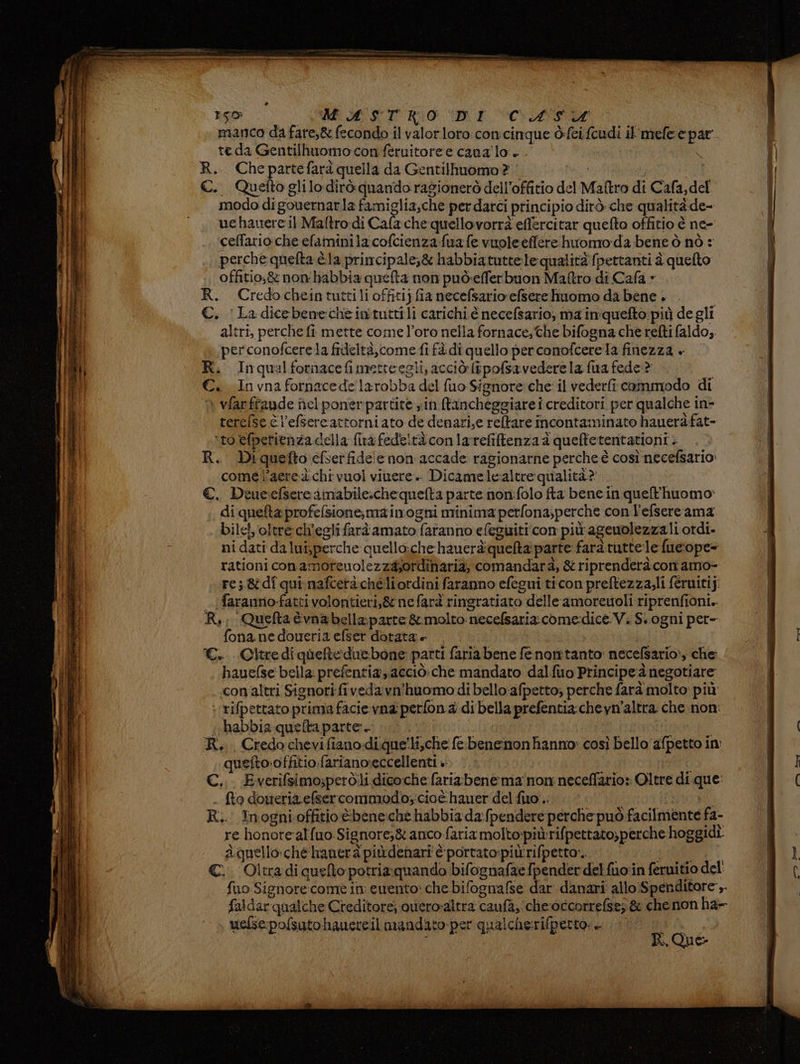 150 MASTRO DI CASA
manco da fare,& ſecondo il valor loro con cinque ò ſei ſcudi il meſe e par
te da Gentilhuomo con ſeruitore e caualo.
R. Che parte farà quella da Gentilhuomo?
C. Queſto gli lo dirò quando ragionerò dell'offitio del Maſtro di Caſa, del
modo di gouernar la famiglia, che per darci principio dirò che qualità de-
ue hauere il Maſtro di Caſa che quello vorrà eſſercitar queſto offitio è ne-
ceſſario che eſamini la coſcienza ſua ſe vuole eſſere huomo da bene ò nò:
perche queſta è la principale,& habbia tutte le qualità ſpettanti à queſto
offitio,& non habbia queſta non può eſſer buon Maſtro di Caſa.
R. Credo che in tutti li offitij ſia neceſsario eſsere huomo da bene.
C. La dice bene che in tutti li carichi è neceſsario, ma in queſto più de gli
altri, perche ſi mette come l'oro nella fornace, che biſogna che reſti ſaldo,
per conoſcere la fideltà, come ſi fà di quello per conoſcere la finezza.
R. In qual fornace ſi mette egli, acciò ſi poſsa vedere la ſua fede?
C. In vna fornace de la robba del ſuo Signore che il vederſi commodo di
vſar fraude nel poner partite, in ſtancheggiare i creditori per qualche in-
tereſse è l'eſsere attorniato de denari, e reſtare incontaminato hauerà fat-
to eſperienza della ſua fedeltà con la reſiſtenza à queſte tentationi.
R. Di queſto eſser fidele non accade ragionarne perche è così neceſsario
come l'aere à chi vuol viuere. Dicame le altre qualità?
C. Deue eſsere amabile che queſta parte non ſolo ſta bene in queſt'huomo
di queſta profeſsione, ma in ogni minima perſona, perche con l'eſsere ama
bile, oltre ch'egli ſarà amato ſaranno eſeguiti con più ageuolezza li ordi-
ni dati da lui, perche quello che hauerà queſta parte farà tutte le ſue ope-
rationi con amoreuolezza, ordinaria, comandarà, & riprenderà con amo-
re; & di qui naſcerà che li ordini ſaranno eſegui ti con preſtezza, li ſeruitij
ſaranno fatti volontieri,& ne ſarà ringratiato delle amoreuoli riprenſioni.
R. Queſta è vna bella parte & molto neceſsaria come dice V. S. ogni per-
ſona ne doueria eſser dotata.
C. Oltre di queſte due bone parti faria bene ſe non tanto neceſsario, che
haueſse bella preſentia, acciò che mandato dal ſuo Principe à negotiare
con altri Signori ſi veda vn'huomo di bello aſpetto, perche ſarà molto più
riſpettato prima facie vna perſona di bella preſentia che vn'altra che non
habbia queſta parte.
R. Credo che vi ſiano di que'li, che ſe bene non hanno così bello aſpetto in
queſto offitio ſariano eccellenti.
C. E veriſsimo, però li dico che faria bene ma non neceſſario: Oltre di que
ſto doueria eſser commodo, cioè hauer del ſuo.
R. In ogni offitio è bene che habbia da ſpendere perche può facilmente fa-
re honore al ſuo Signore,& anco faria molto più riſpettato, perche hoggidì
à quello che hauerà più denari è portato più riſpetto.
C. Oltra di queſto potria quando biſognaſse ſpender del ſuo in ſeruitio del
ſuo Signore come in euento che biſognaſse dar danari allo Spenditore,
ſaldar qualche Creditore, ouero altra cauſa, che occorreſse; & che non ha-
ueſse poſsuto hauere il mandato per qualche riſpetto.
R. Que-